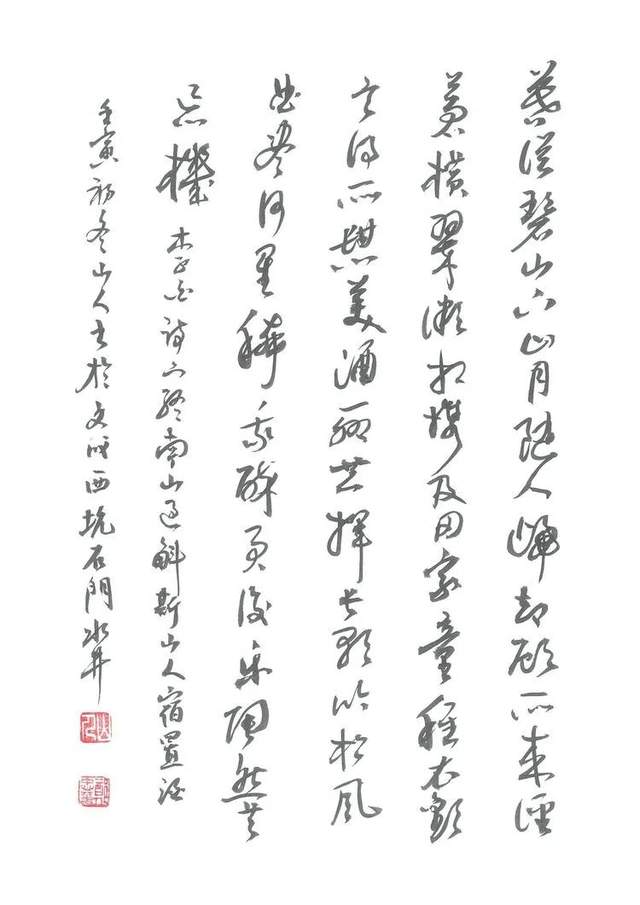 暮從碧山下山月隨人歸却顧所來徑
蒼橫翠微相攜及田家童稚衣歡
言得所憩美酒聊共揮長歌吟松風
曲盡河星稀我醉君復樂陶然共
忘機 李白詩下終南山過斛斯山人宿置酒
壬寅初冬山人書於文成西坑石門水井